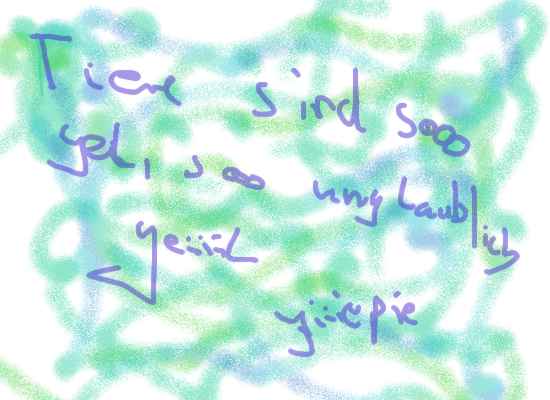 Tiere sind sooo
gel, soo unglaublich
geiiil
yiiiepie